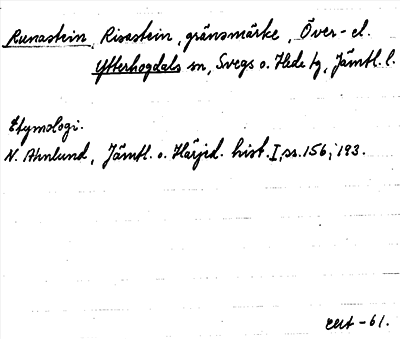 Runastein, Risastein, gränsmärke, Över- el.
Ytterhogdals sn, Svegs o. Hede tg, Jämtl. l.
Etymologi.
N. Ahnlund, Jämtl. o. Härjed. hist. I, ss. 156, 193.
-61.